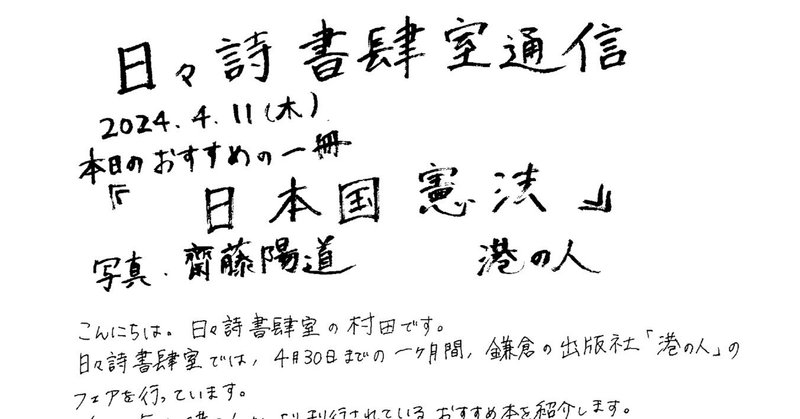 日々詩書肆室通信
2024.4.11(木)
本日のおすすめの一冊
『日本国憲法』
写真.齋藤陽道 港の人
こんにちは。日々詩書肆室の村田です。
日々詩書肆室では,4月30日までの一ヶ月間,鎌倉の出版社「港の人」の
フェアを行っています。
刊行されているおすすめ本を紹介します。